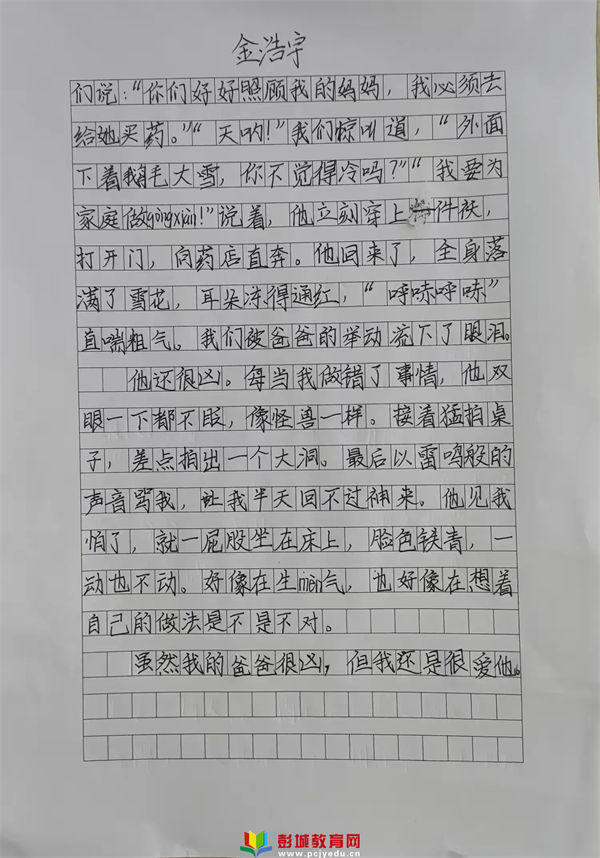 金浩宇
们说：“你们好好照顾我的妈妈，我必须去
给她买药。”“天哟！”我们惊叫道，“外面
下着鹅毛大雪，你不觉得冷吗？”“我要为
家庭做gòngxiàn！”说着，他立刻穿上一件袄，
打开门，向药店直奔。他回来了，全身落
满了雪花，耳朵冻得通红，“呼哧呼哧”
直喘粗气。我们被爸爸的举动流下了眼泪。
他还很凶。每当我做错了事情，他双
眼一下都不眨，像怪兽一样。接着猛拍桌
子，差点拍出一个大洞。最后以雷鸣般的
声音骂我，让我半天回不过神来。他见我
怕了，就一屁股坐在床上，脸色铁青，一
动也不动。好像在生mèn气，也好像在想着
自己的做法是不是不对。
虽然我的爸爸很凶，但我还是很爱他。
彭城教育网
www.pcjyedu.cn